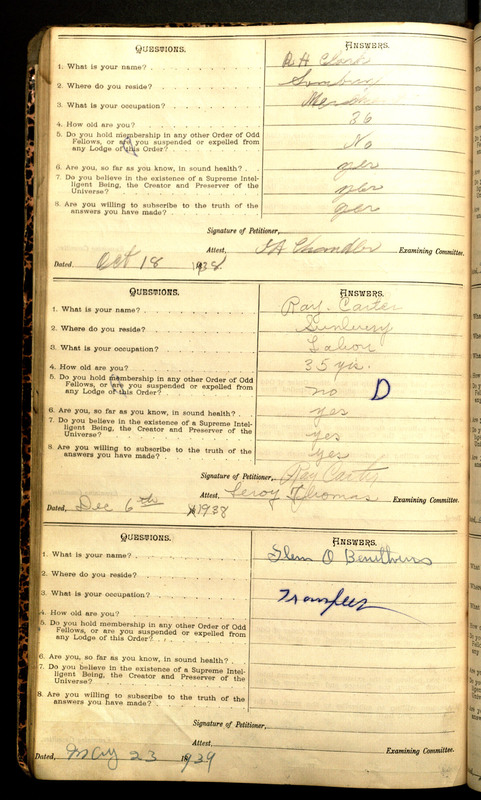 QUESTIONS. ANSWERS.
1. What is your name? R H Clark
2. Where do you reside? Sunbury
3. What is your occupation?
4. How old are you? 36
5. Do you hold membership in any other Order of Odd
Fellows, or are you suspended or expelled from
any Lodge of this Order? No
6. Are you, so far as you know, in sound health? yes
7. Do you believe in the existence of a Supreme Intel-
ligent Being, the Creator and Preserver of the
Universe? yes
8. Are you willing to subscribe to the truth of the
answers you have made? yes
Signature of Petitioner,
Attest, Chandler Examining Committee.
Dated, Oct 18 1938
QUESTIONS. ANSWERS.
1. What is your name? Ray. Carter
2. Where do you reside? Sunbury
3. What is your occupation? Labor
4. How old are you? 35 yrs.
5. Do you hold membership in any other Order of Odd
Fellows, or are you suspended or expelled from
any Lodge of this Order? no D
6. Are you, so far as you know, in sound health? yes
7. Do you believe in the existence of a Supreme Intel-
ligent Being, the Creator and Preserver of the
Universe? yes
8. Are you willing to subscribe to the truth of the
answers you have made? yes
Signature of Petitioner, Ray Carter
Attest, Leroy Thomas Examining Committee.
Dated, Dec 6th 1938
QUESTIONS. ANSWERS.
1. What is your name? Glenn O
2. Where do you reside?
3. What is your occupation? Transfer
4. How old are you?
5. Do you hold membership in any other Order of Odd
Fellows, or are you suspended or expelled from
any Lodge of this Order?
6. Are you, so far as you know, in sound health?
7. Do you believe in the existence of a Supreme Intel-
ligent Being, the Creator and Preserver of the
Universe?
8. Are you willing to subscribe to the truth of the
answers you have made?
Signature of Petitioner,
Attest, Examining Committee.
Dated, May 23 1939